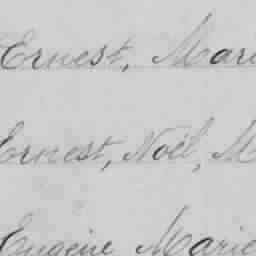 Ernest, Mari
Ernest, Noël, M
Eugène Marie